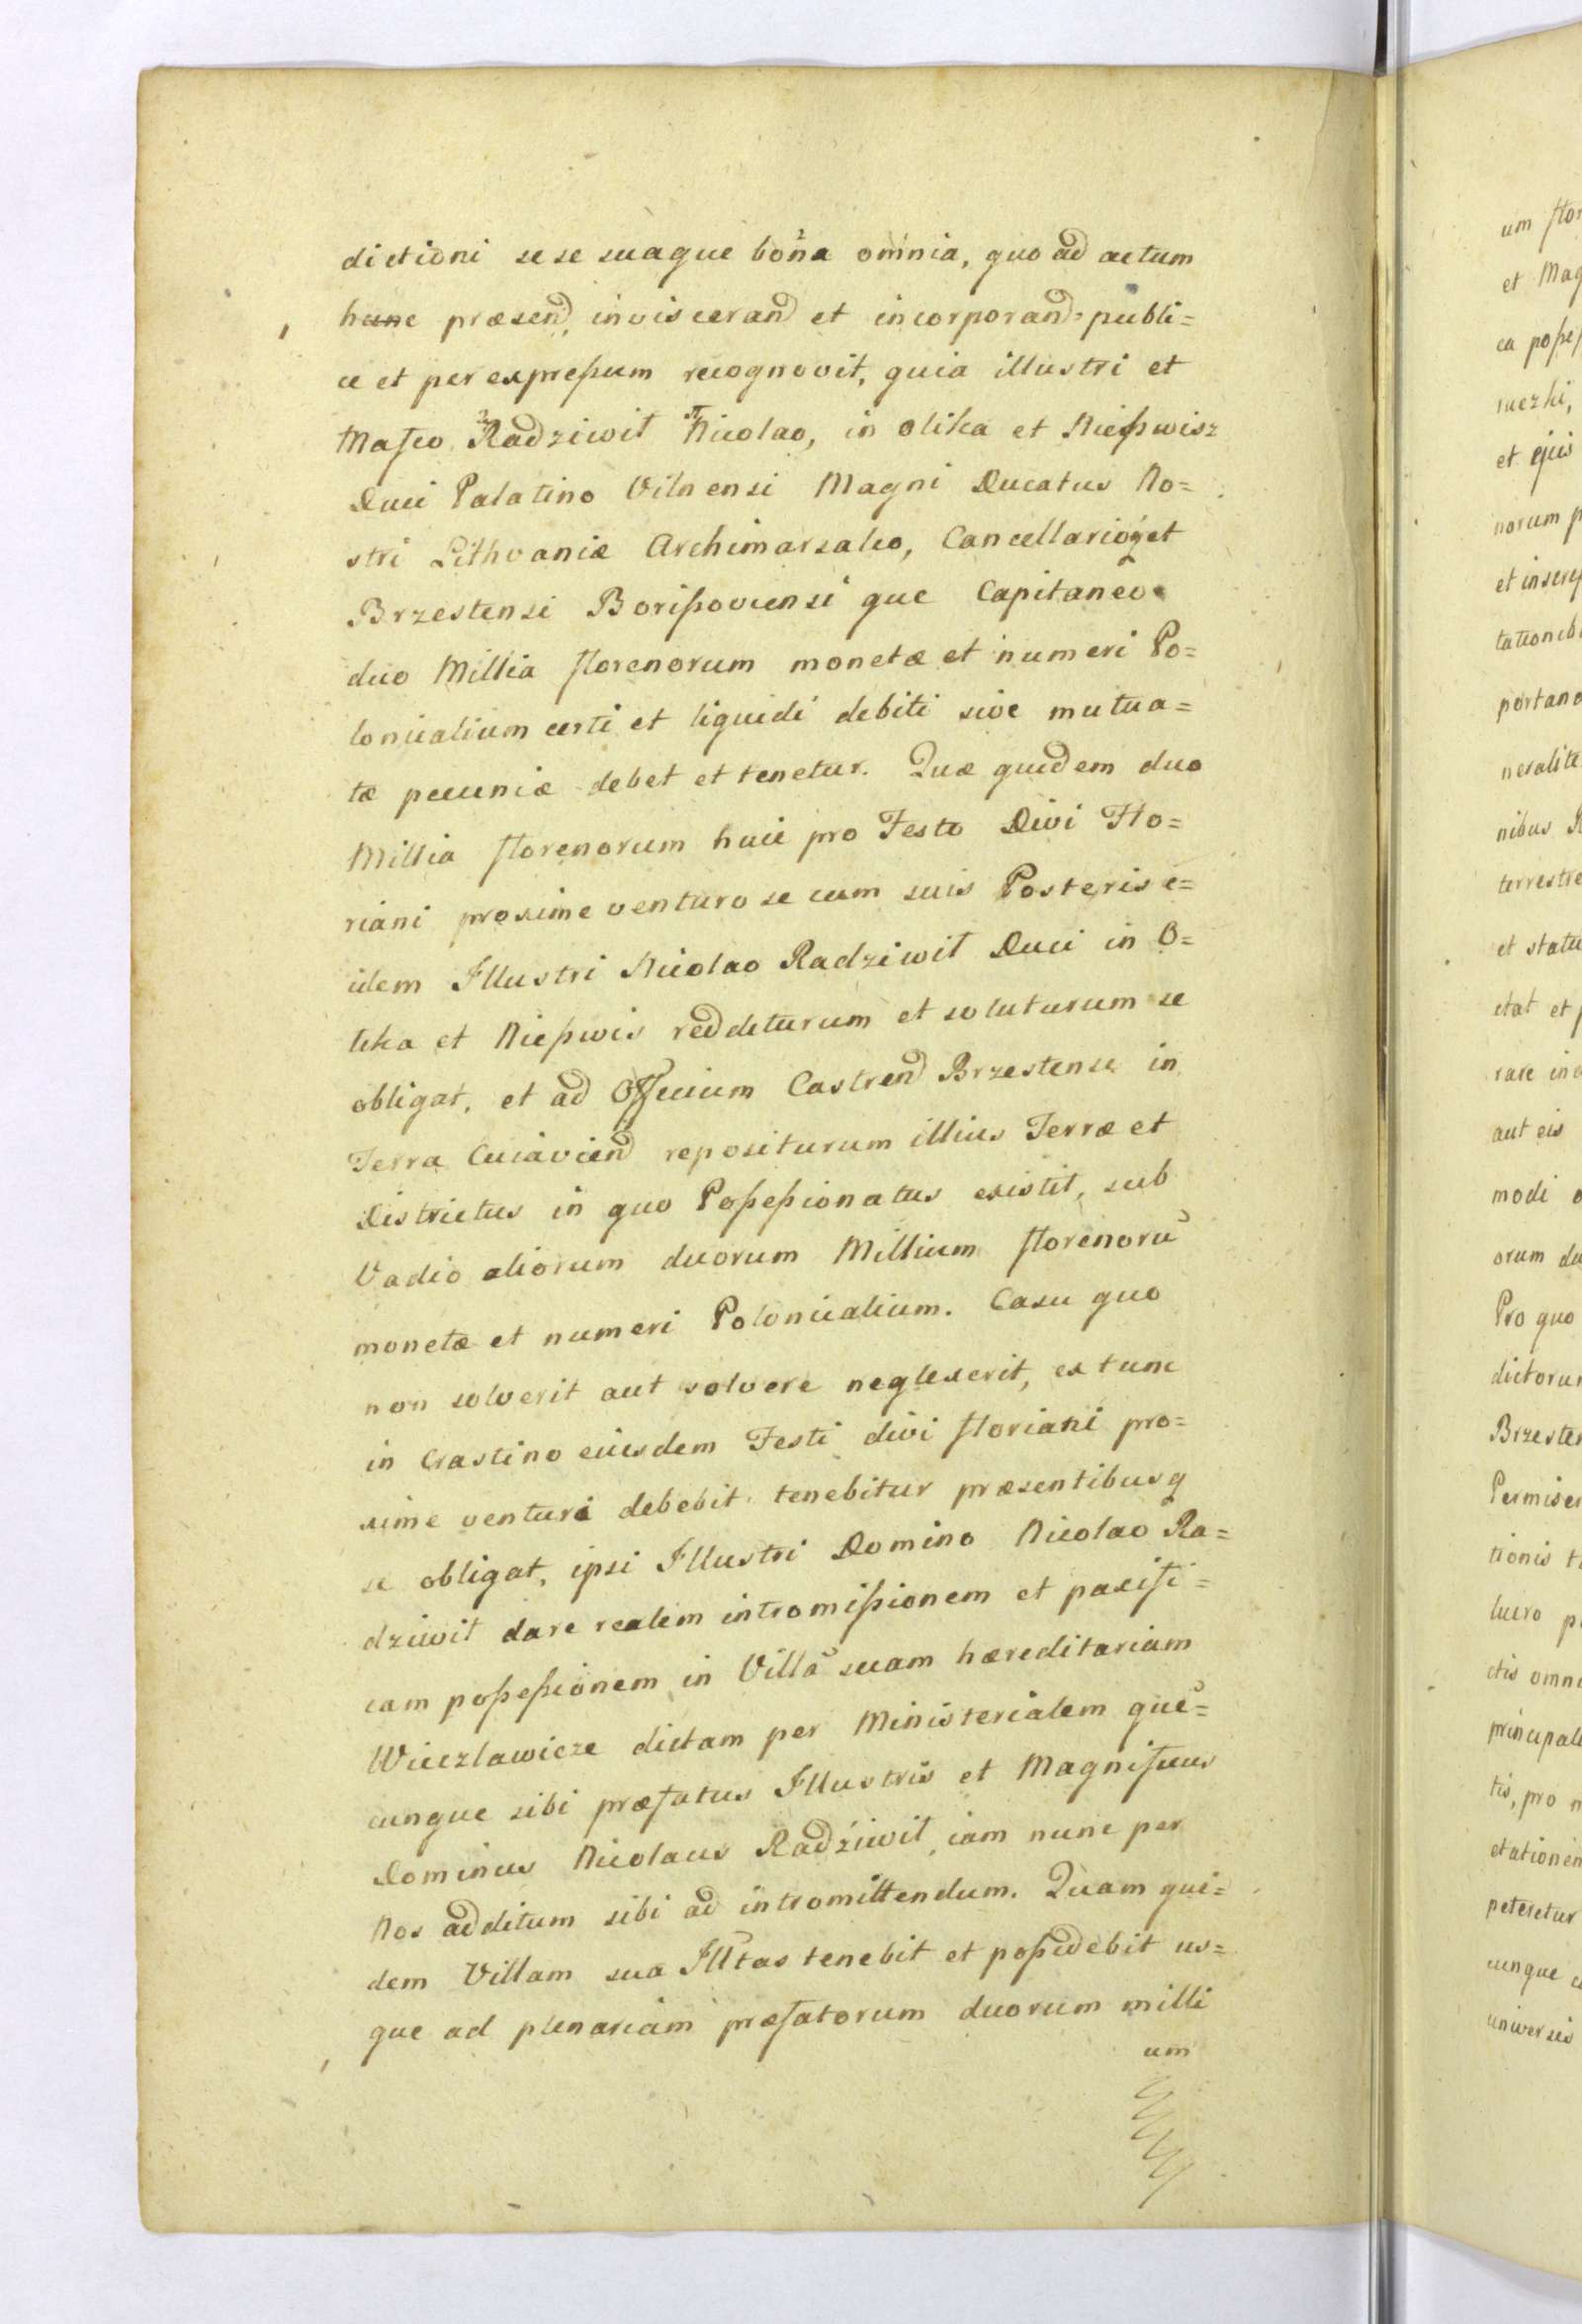 dictioni se se suaque bona omnia, quo ad actum
hunc præsend, inviscerand et incorporand publi=
ce et per expreßum recognovit, quia illustri et
Mafco Radziwił Nicolao, in Olika et Nießwisz
Duci Palatino Vilnensi Magni Ducatus No=
stri Lithvaniæ Archimarsalco, Cancellarioq et
Brzestensi Borißoviensi que Capitaneo
duo Millia florenorum monetæ et numeri Po=
lonicalium certi et liquidi debiti sive mutua=
tæ pecuniæ debet et tenetur. Quæ quidem duo
Millia florenorum huic pro Festo Divi Flo=
riani proxime venturo se cum suis Posteris e=
idem Illustri Nicolao Radziwił Duci in O=
lika et Nießwis redditurum et soluturum se
obligat, et ad Officium Castrend Brzestense in
Terra Cuiaviend repositurum illius Terræ et
Districtus in quo Poßeßionatus existit, sub
Vadio aliorum duorum Millium florenorũ
monetæ et numeri Polonicalium. Casu quo
non solverit aut solvere neglexerit, ex tunc
in Crastino eiusdem Festi divi floriani pro=
xime venturi debebit tenebitur præsentibusq
se obligat, ipsi Illustri Domino Nicolao Ra=
dziwił dare realem intromißionem et pacifi=
cam poßeßionem in Villã suam hæreditariam
Wieczlawicze dictam per Ministerialem quẽ=
cunque sibi præfatus Illustris et Magnificus
Dominus Nicolaus Radziwił, iam nunc per
Nos additum sibi ad intromittendum. Quam qui=
dem Villam sua Illtas tenebit et poßidebit us=
que ad plenariam præfatorum duorum milli
um
um flor
et Mag
ca poße
et ejus
norum p
et inscrip
tationib
portand
neralite
nibus R
terrestre
et statu
ctat et p
rare in
aut eis
modi
orum du
Pro quo
dictorum
Brzesten
Permiser
tionis t
lucro p
ctis omni
principal
tis, pro n
ctationem
peteretur
cunque c
universis